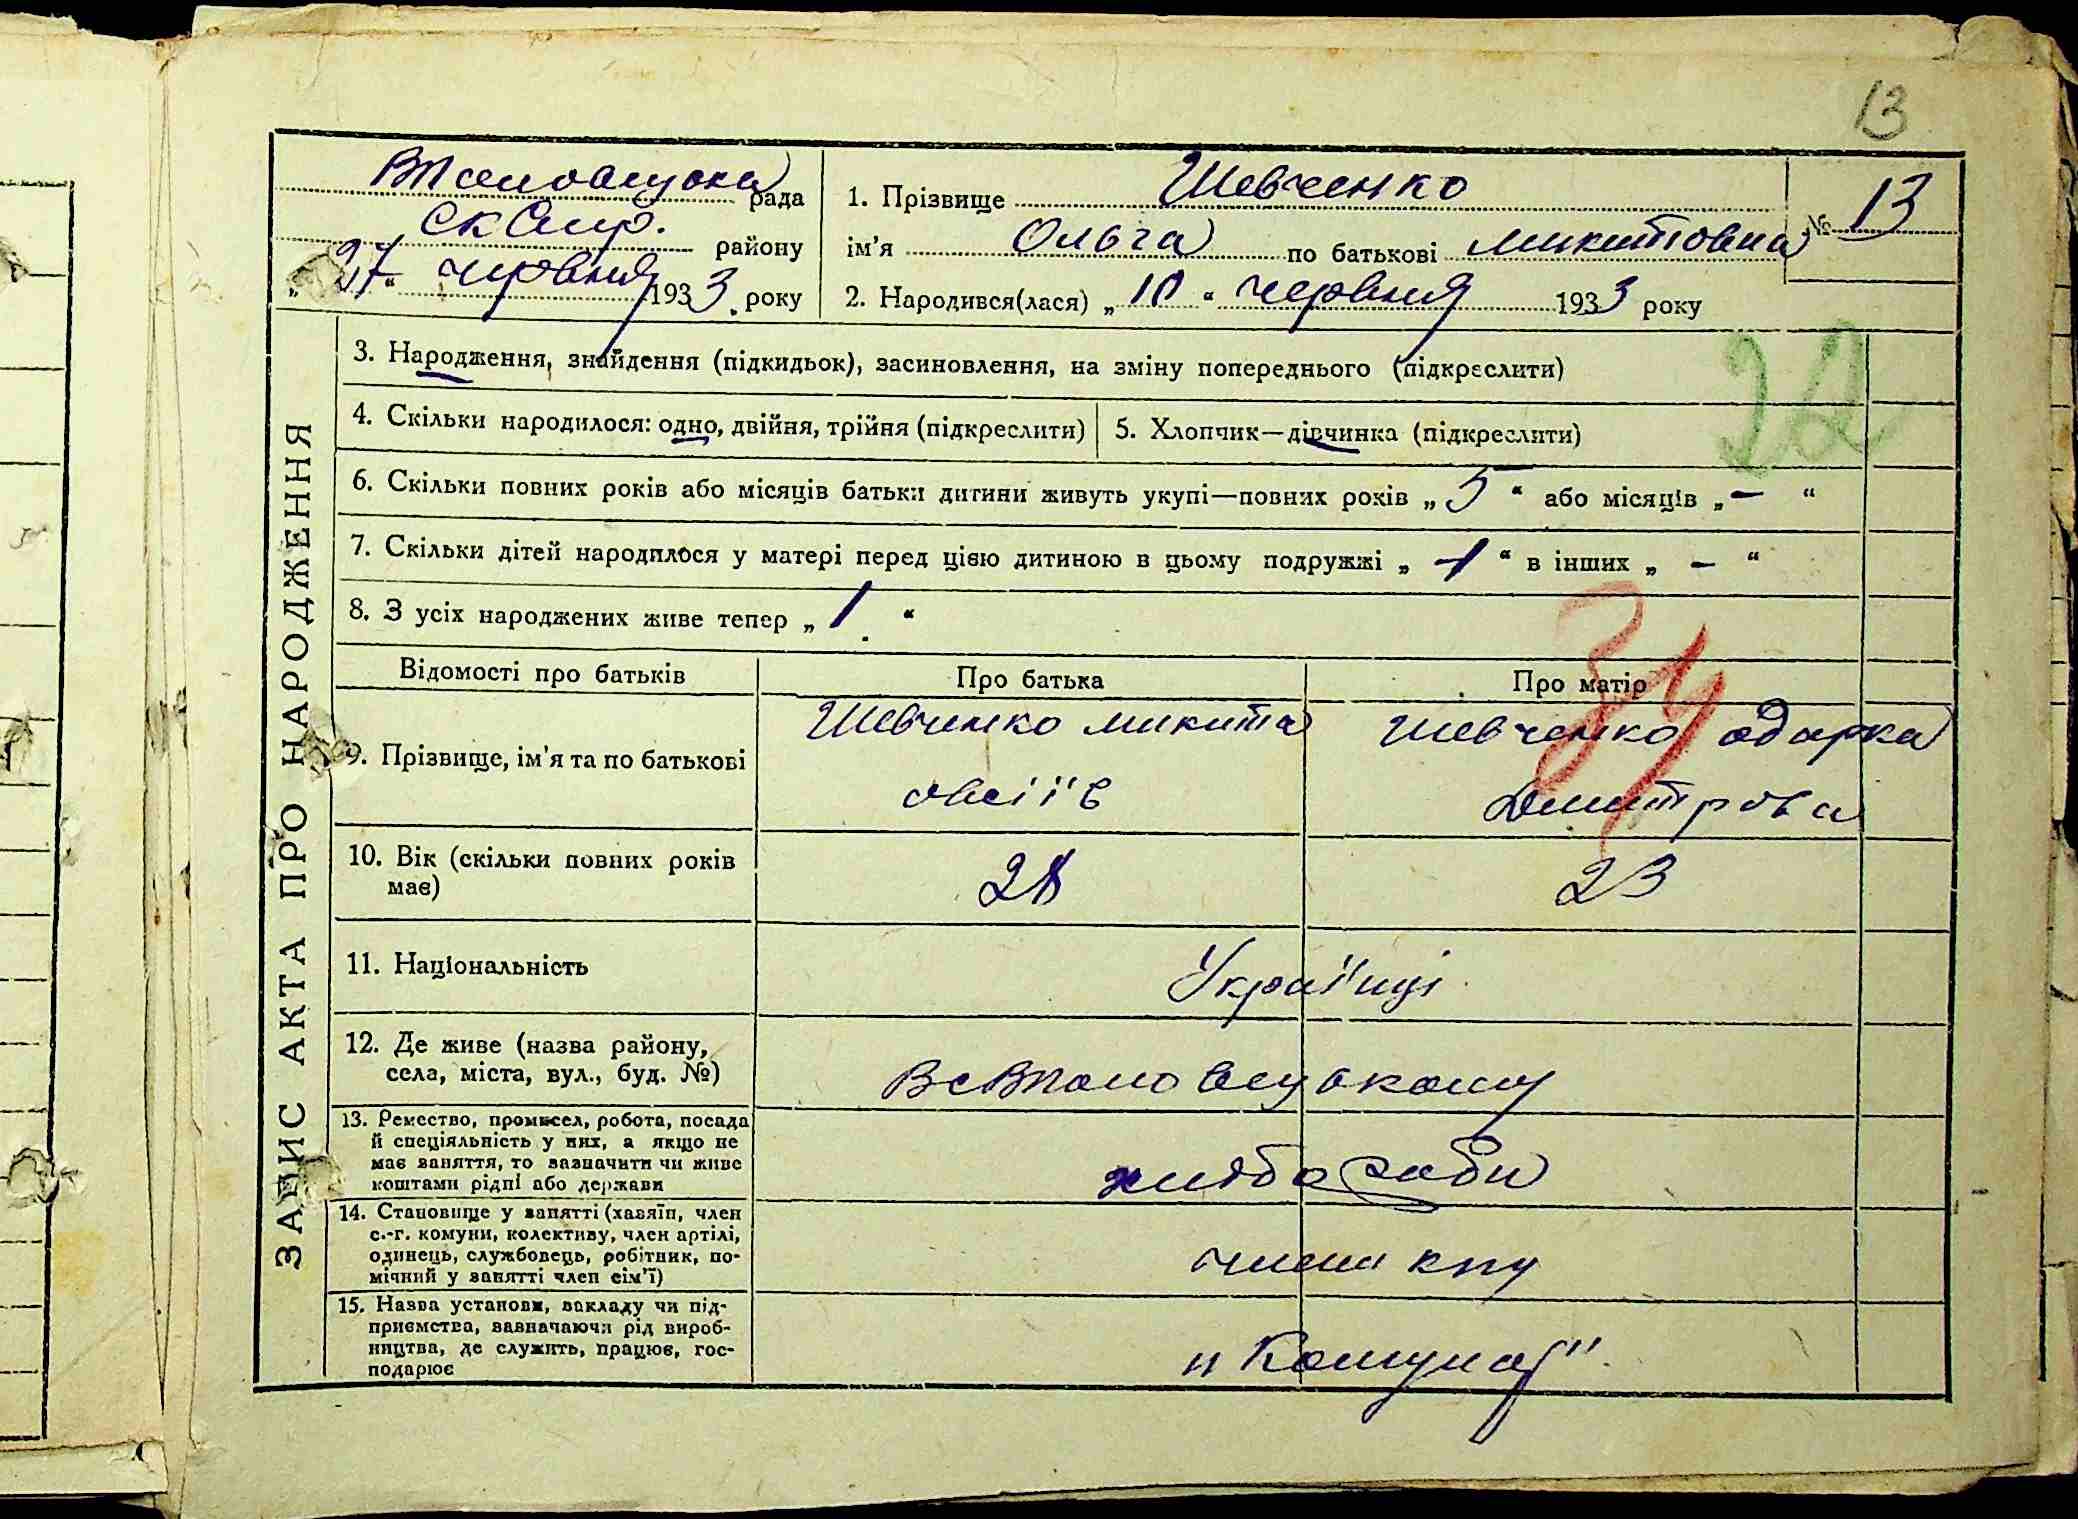 13
рада
Сквир. району
„27“ червня 1933 року
1. Прізвище Шевченко
№ 13
ім'я Ольга по батькові Микитовна
2. Народився(лася) „10“ червня 1933 року
ЗАПИС АКТА ПРО НАРОДЖЕННЯ
3. Народження, знайдення (підкидьок), засиновлення, на зміну попереднього (підкреслити)
4. Скільки народилося: одно, двійня, трійня (підкреслити)
5. Хлопчик—дівчинка (підкреслити)
6. Скільки повних років або місяців батьки дитини живуть укупі—повних років „5“ або місяців „—“
7. Скільки дітей народилося у матері перед цією дитиною в цьому подружжі „1“ в інших „—“
8. З усіх народжених живе тепер „1“
Відомості про батьків
Про батька
Про матір
9. Прізвище, ім'я та по батькові
Шевченко Микита
Овсіїв
Шевченко Одарка
Дмитрова
10. Вік (скільки повних років
має)
28
23
11. Національність
Українці
12. Де живе (назва району,
села, міста, вул., буд. №)
13. Ремество, промисел, робота, посада
й спеціяльність у них, а якщо не
має заняття, то зазначити чи живе
коштами рідні або держави
хлібороби
14. Становище у занятті (хазяїн, член
с.-г. комуни, колективу, член артілі,
одинець, службовець, робітник, по-
мічний у занятті член сім'ї)
члени
15. Назва установи, закладу чи під-
приємства, зазначаючи рід вироб-
ництва, де служить, працює, гос-
подарює
„Комунар"